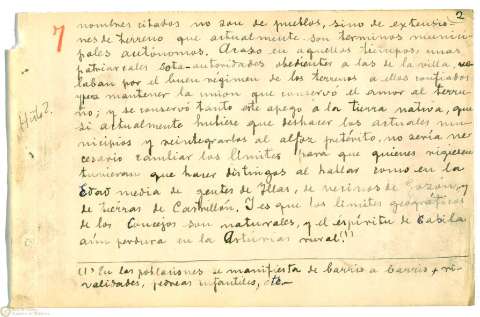 2
7
nombres citados no son de pueblos, sino de extensio-
nes de terreno que actualmente son términos munici-
pales autónomos. Acaso en aquellos tiempos, unas
patriarcales sota-autoridades obedientes a las de la villa, ve-
laban por el buen régimen de los terrenos a ellos confiados
para mantener la unión que conservó el amor al terru-
ño; y se conservó tanto este apego a la tierra nativa, que
si actualmente hubiese que deshacer los actuales mu-
nicipios y reintegrarlos al alfoz pretérito, no sería ne-
cesario cambiar los límites para que quienes rigiesen
tuvieran que hacer distingos al hablar como en la
Edad media de gentes de Illas, de vecinos de Gozón, y
de tierras de Castrillón. Y es que los límites geográficos
de los Concejos son naturales, y el espíritu de
aún perdura en la Asturias rural.(1)
(1) En las poblaciones se manifiesta de barrio a barrio x ri-
validades, pedreas infantiles, etc.